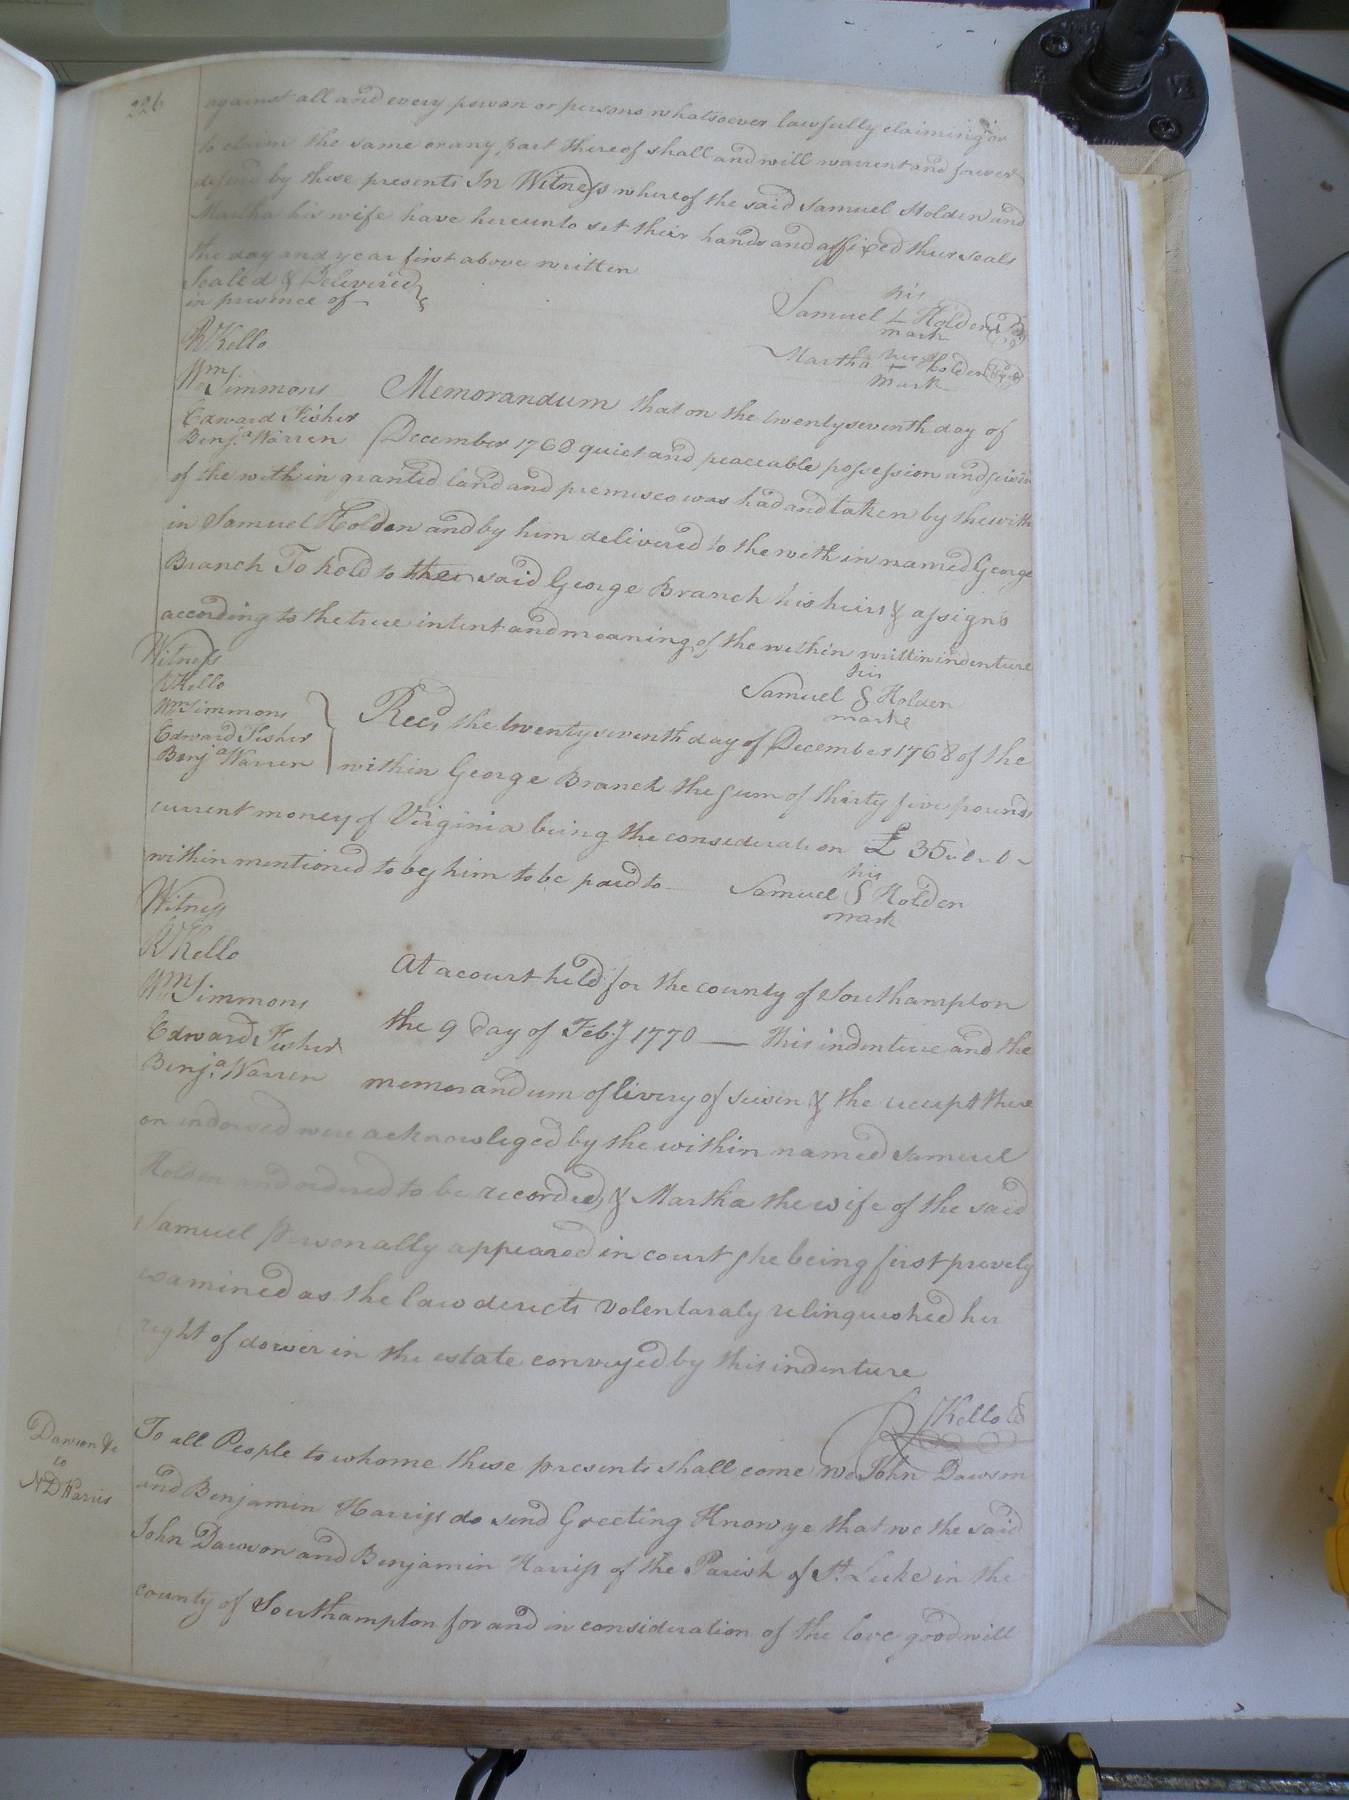 226
against all and every person or persons whatsoever lawfully claiming or
to claim the same or any part thereof shall and will warrent and forever
defend by these presents In Witness whereof the said Samuel Holden and
Martha his wife have hereunto set their hands and affixed their seals
the day and year first above written
Sealed & Delivered
in presence of
his
Samuel L Holden
mark
RKello
her
Martha + Holden
mark
Wm Simmons
Memorandum that on the twenty seventh day of
Edward Fisher
Benja Warren
December 1768 quiet and peaceable possession and seisin
of the with in granted land and premises was had and taken by the with
in Samuel Holden and by him delivered to the with in named George
Branch To hold to the said George Branch his heirs & assigns
according to the true intent and meaning of the within written indenture
Witness
his
Samuel S Holden
marke
RKello
Wm Simmons
Edward Fisher
Benja Warren
Recd the twenty seventh day of December 1768 of the
within George Branch the sum of thirty five pounds
current money of Virginia being the consideration £ 35..0..0
within mentioned to by him to be paid to
his
Samuel S Holden
mark
Witness
RKello
Wm Simmons
Edward Fisher
Benja Warren
At a court held for the county of Southampton
the 9 day of Feby 1770 — this indenture and the
memorandum of livery of seisin & the receipt there
on indorsed were acknowleged by the within named Samuel
Holden and ordered to be recorded, & Martha the wife of the said
Samuel personally appeared in court she being first prevely
examined as the law derects volentaraly relinqueshed her
right of dower in the estate conveyed by this indenture
RKello
Dawson &c
to
ND Harris
To all People to whome these presents shall come We John Dawson
and Benjamin Harriss do send Greeting Know ye that we the said
John Dawson and Benjamin Harriss of the Parish of St. Luke in the
county of Southampton for and in consideration of the love good will